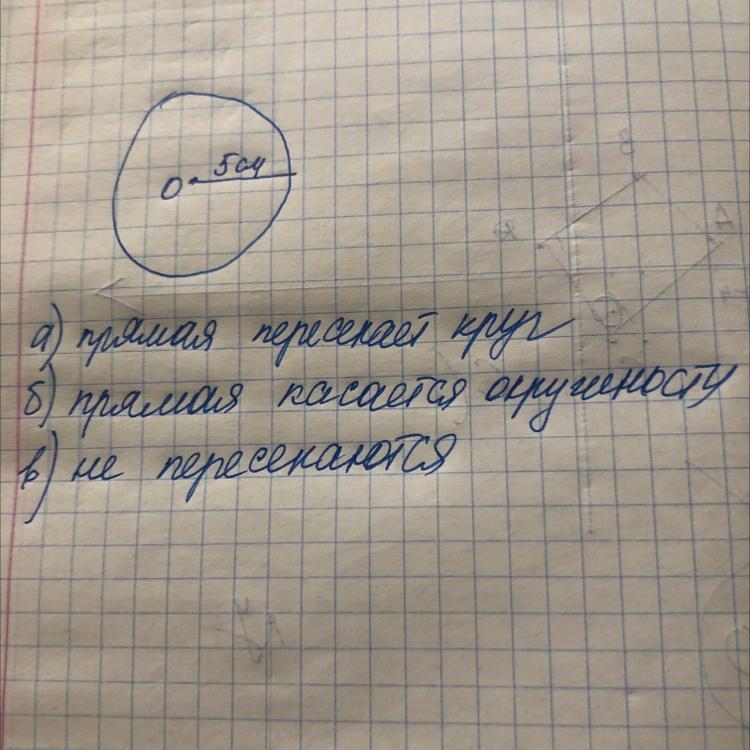 O 5см
а) прямая пересекает круг
б) прямая касается окружносту
в) не пересекаются